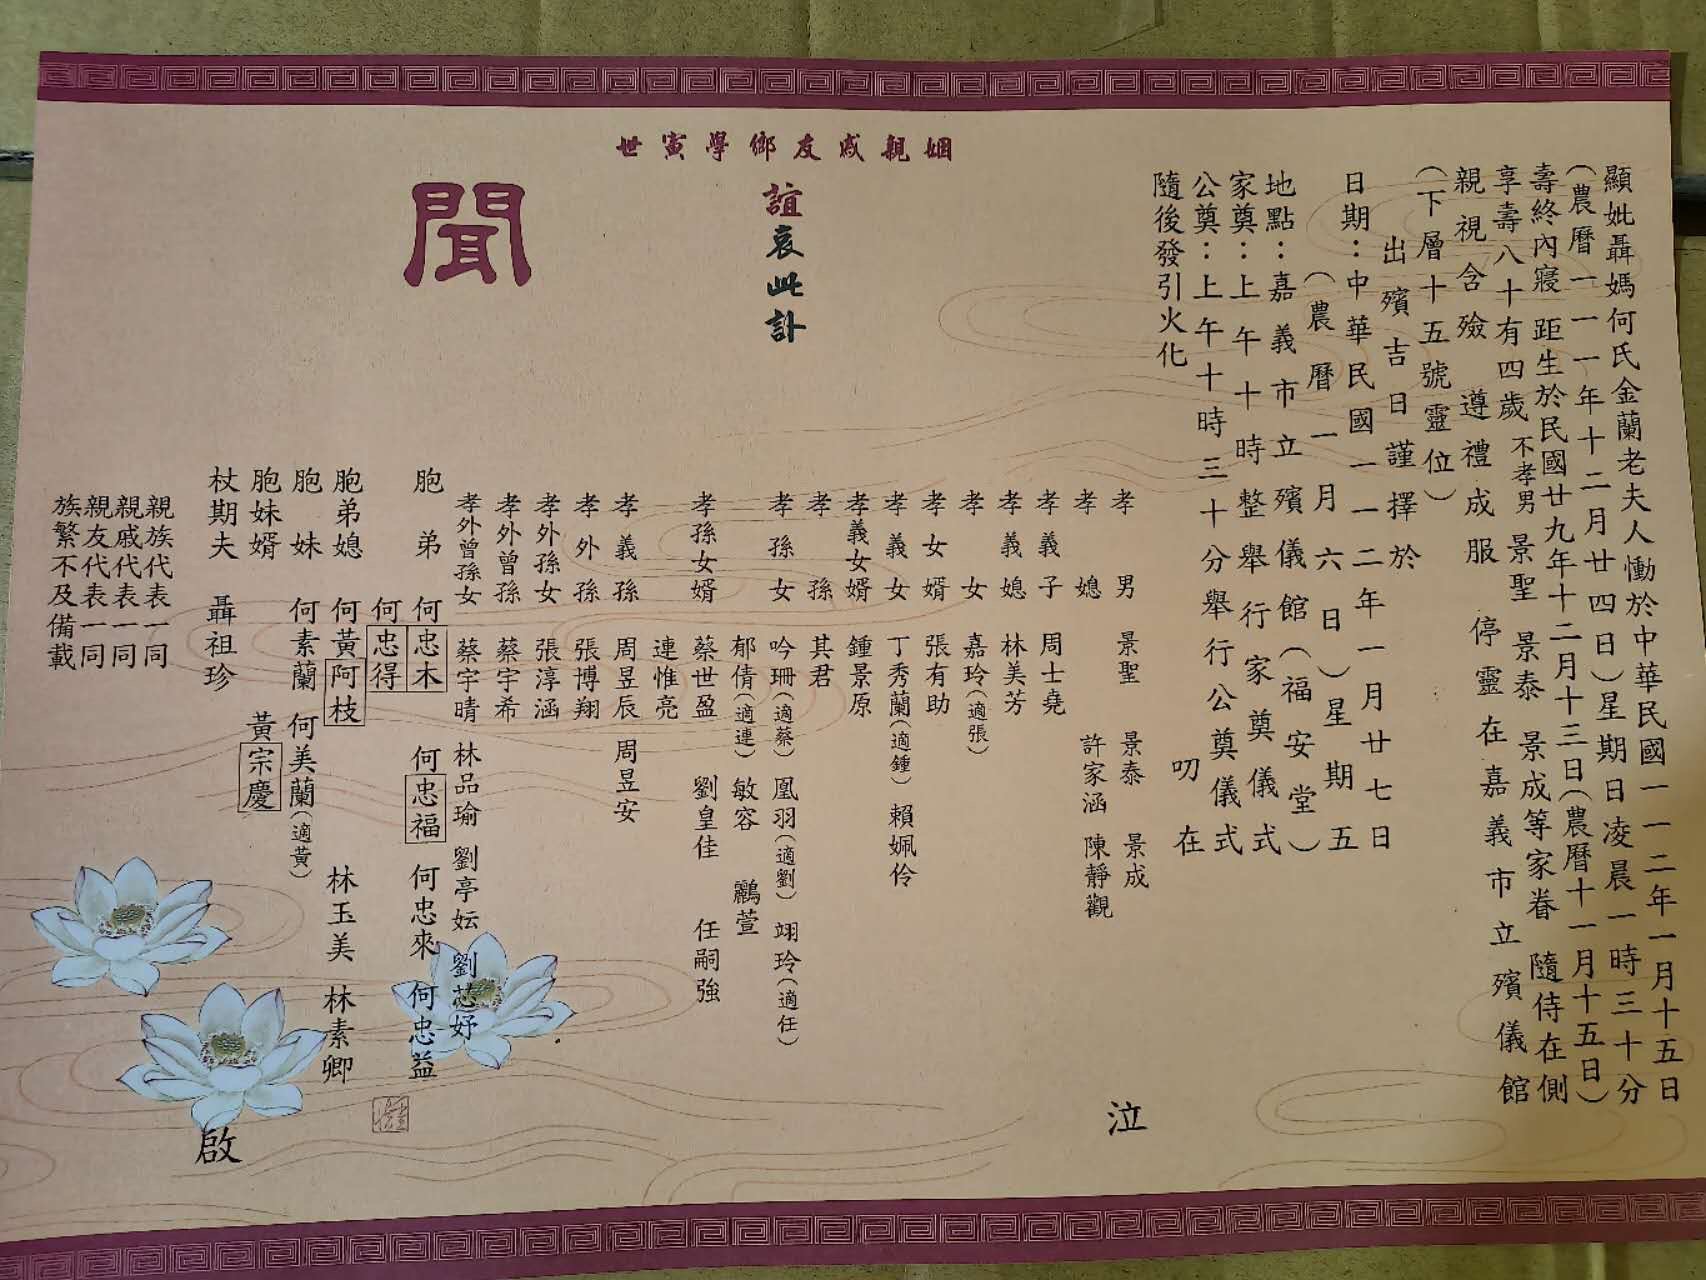 顯妣聶媽何氏金蘭老夫人慟於中華民國一一二年一月十五日
(農曆一一一年十二月廿四日)星期日凌晨一時三十分
壽終內寢 距生於民國廿九年十二月十三日(農曆十一月十五日)
享壽八十有四歲 不孝男 景聖 景泰 景成等家眷 隨侍在側
親視含殮 遵禮成服 停靈在嘉義市立殯儀館
(下層十五號靈位)
出殯吉日謹擇於
日期:中華民國一一二年一月廿七日
(農曆一月六日)星期五
地點:嘉義市立殯儀館(福安堂)
家奠:上午十時整舉行家奠儀式
公奠:上午十時三十分舉行公奠儀式
隨後發引火化
叨在
姻親戚友鄉學寅世
誼哀此訃
聞
孝男 景聖 景泰 景成
孝媳 許家涵 陳靜觀
孝義子 周士堯
孝義媳 林美芳
孝女 嘉玲(適張)
孝女婿 張有助
孝義女 丁秀蘭(適鍾) 賴姵伶
孝義女婿 鍾景原
孝孫 其君
孝孫女 吟珊(適蔡) 凰羽(適劉) 翊玲(適任)
郁倩(適連) 敏容 鸝萱
孝孫女婿 蔡世盈 劉皇佳 任嗣強
連惟亮
孝義孫 周昱辰 周昱安
孝外孫 張博翔
孝外孫女 張淳涵
孝外曾孫 蔡宇希
孝外曾孫女 蔡宇晴 林品瑜 劉亭妘 劉苡妤
胞弟 何忠木 何忠福 何忠來 何忠益
何忠得
胞弟媳 何黃阿枝 林玉美 林素卿
胞妹 何素蘭 何美蘭(適黃)
胞妹婿 黃宗慶
杖期夫 聶祖珍
親族代表一同
親戚代表一同
親友代表一同
族繁不及備載
泣
啟